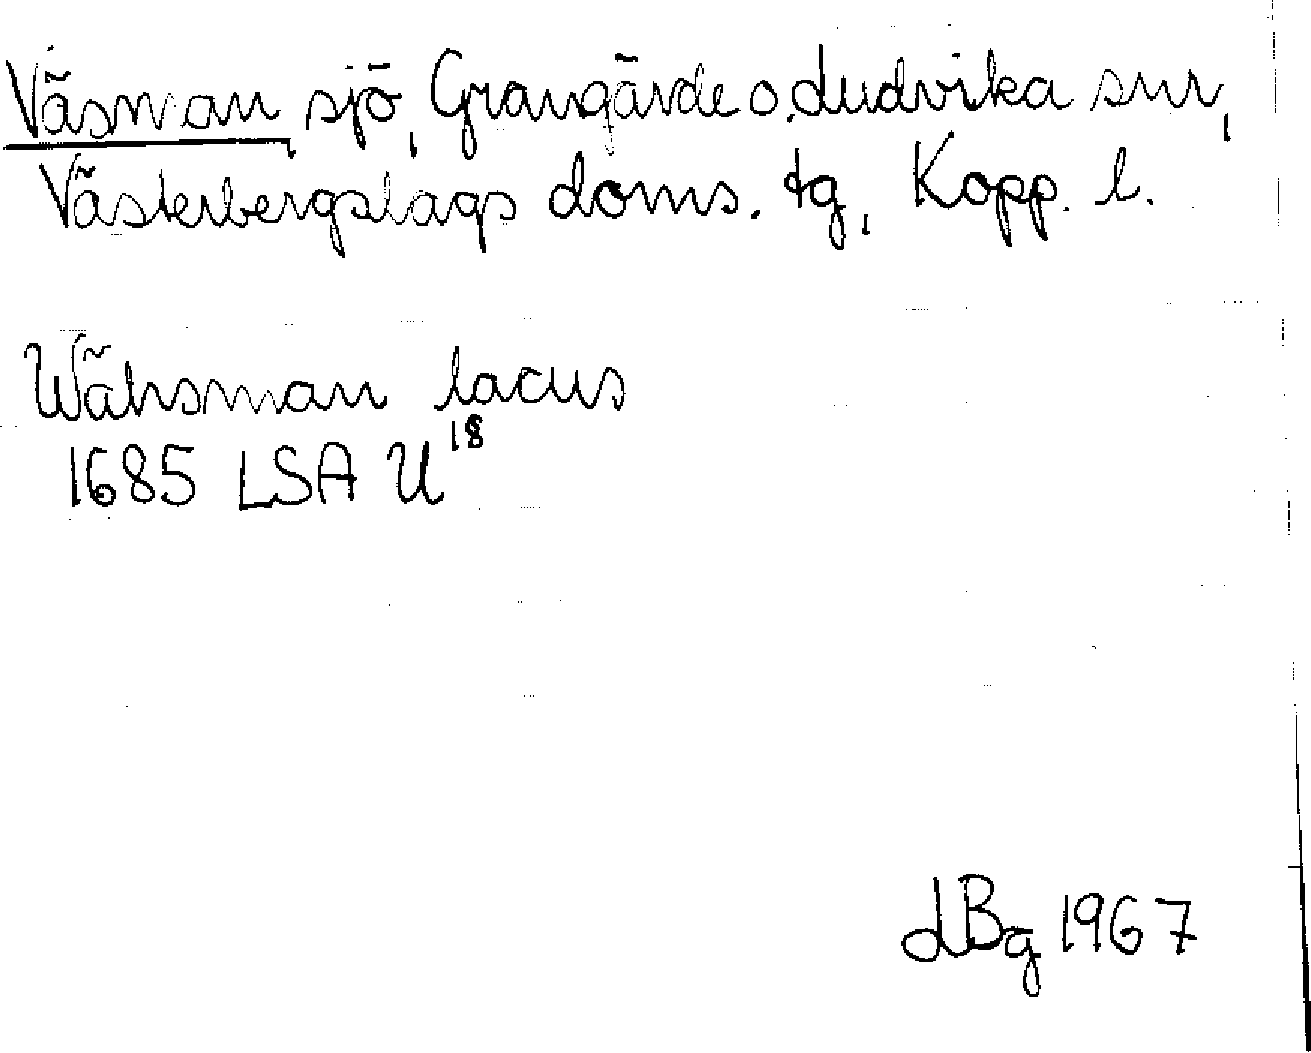 Väsman, sjö, Grangärde o. Ludvika snr,
Västerbergslags doms. tg, Kopp. l.
Wähsman lacus
1685 LSA U 18
LBg 1967